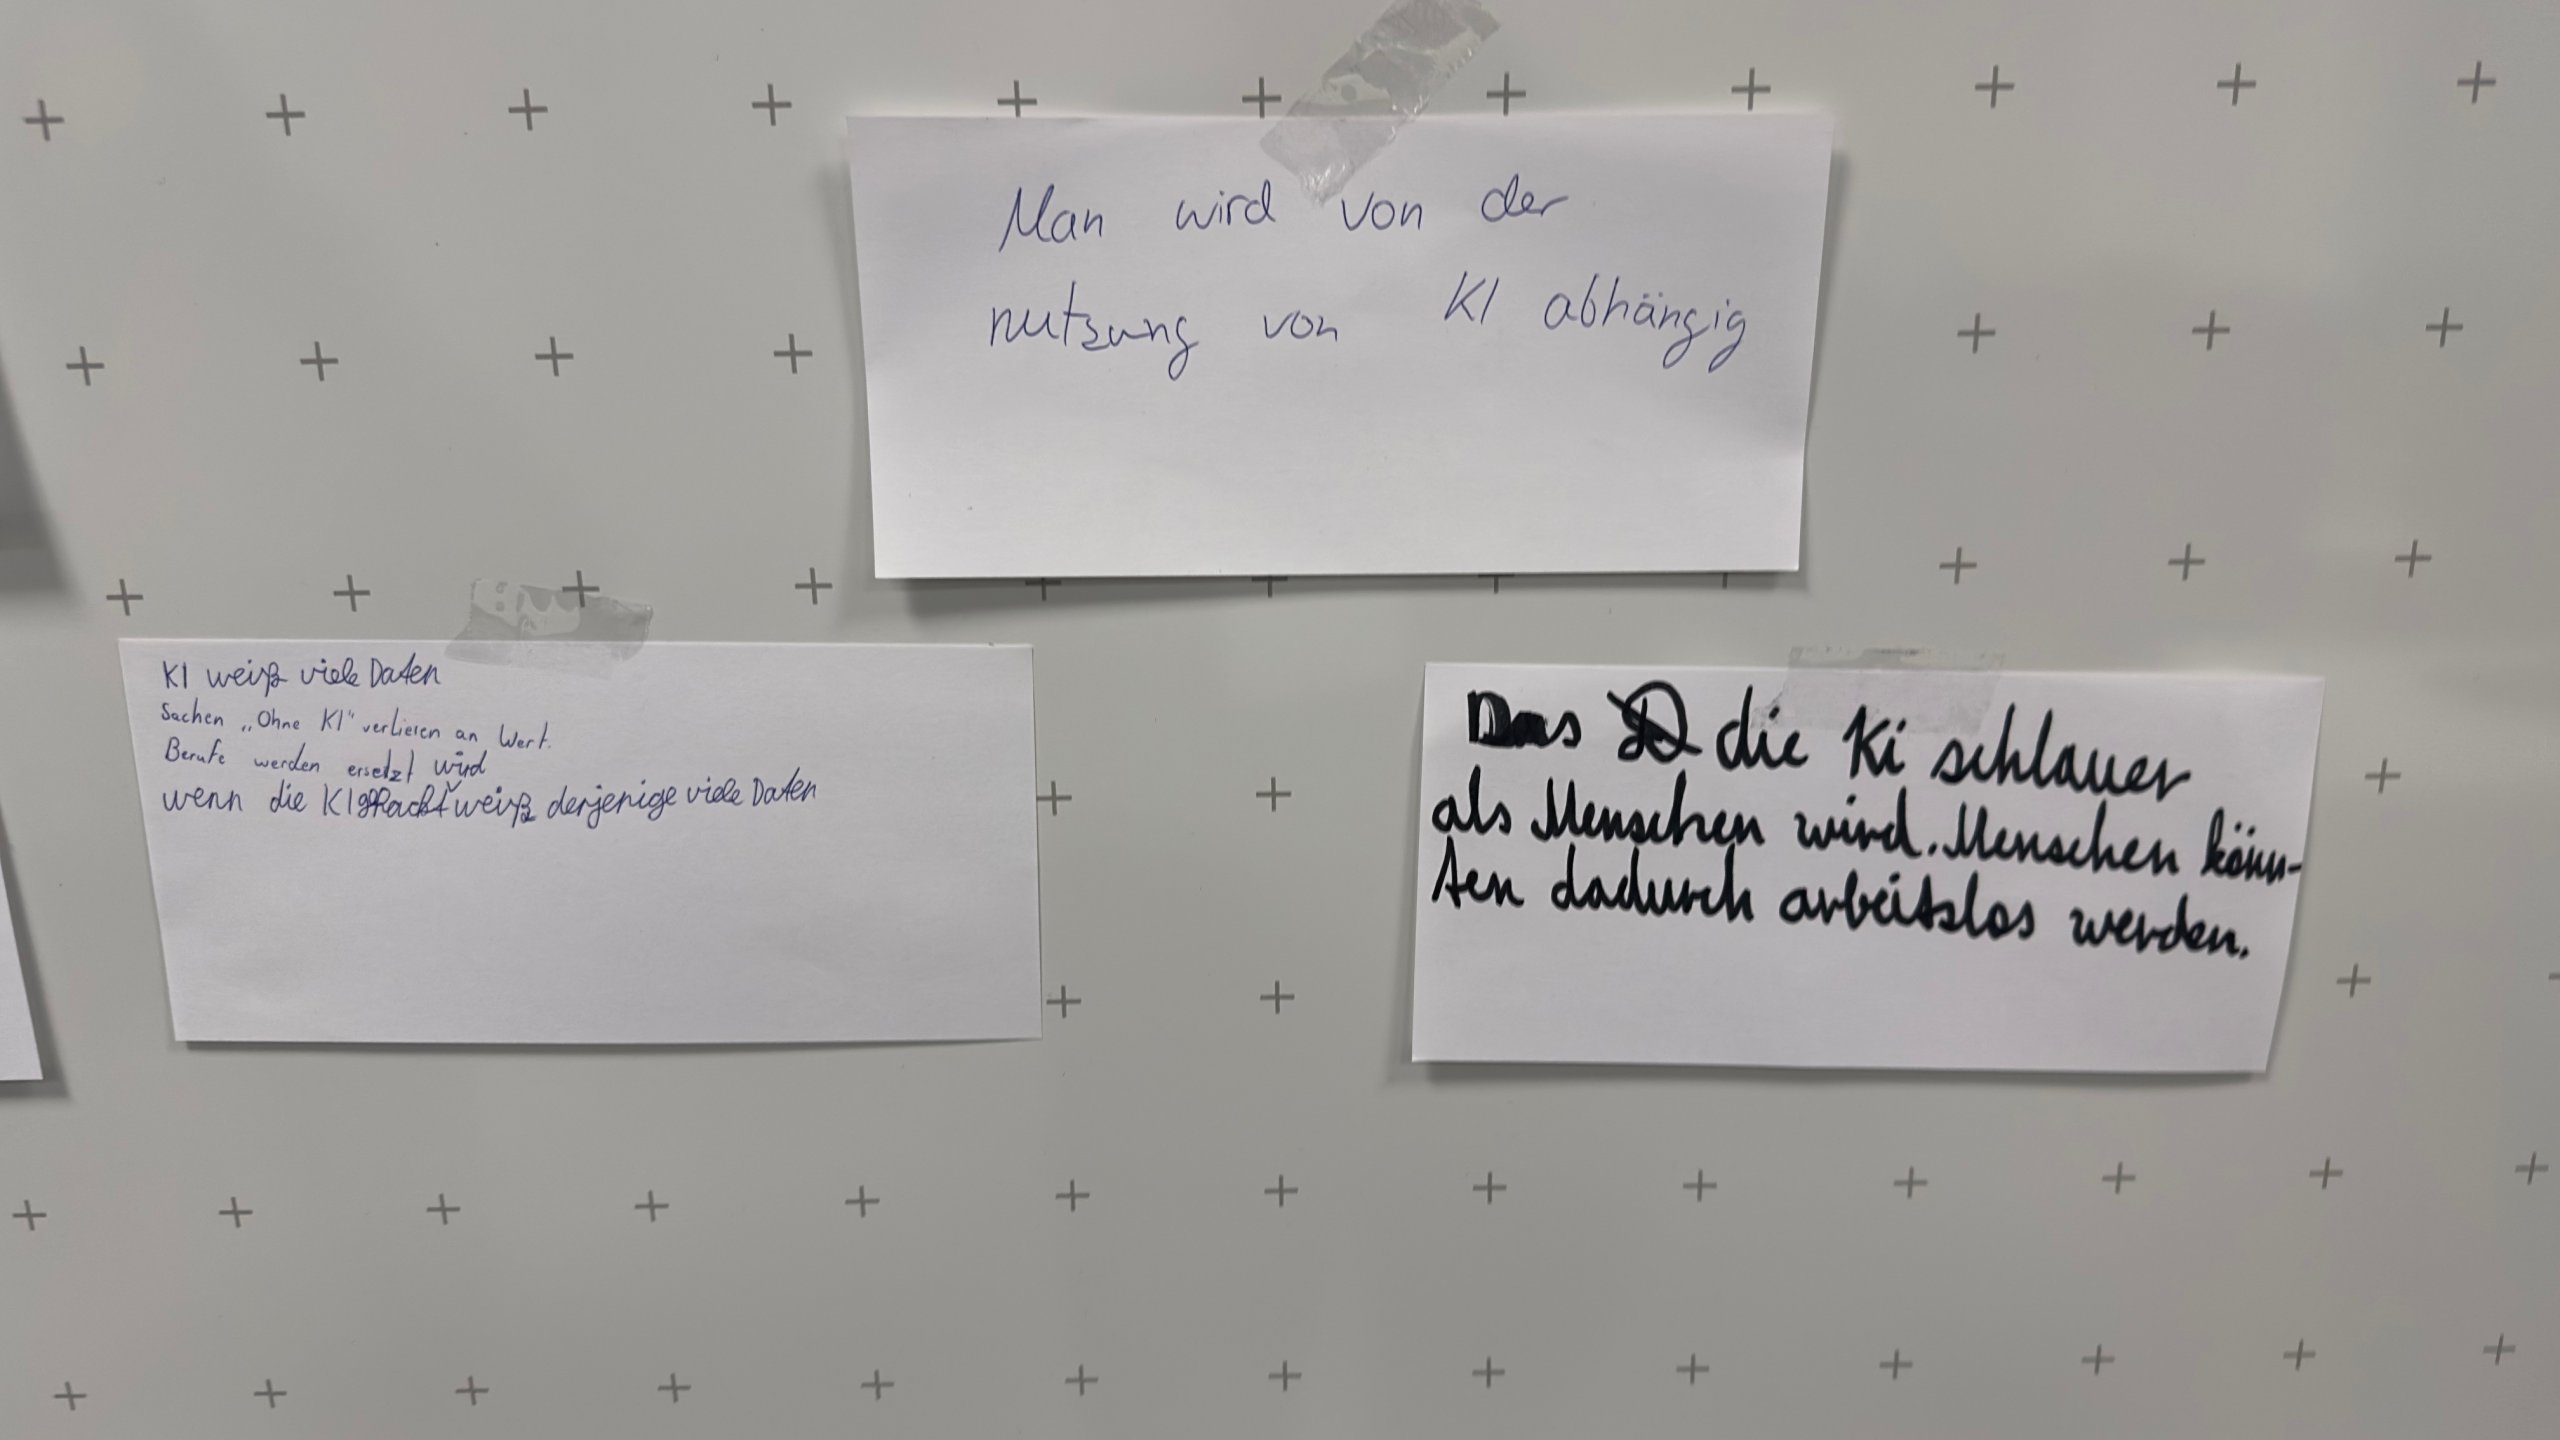 Man wird von der
nutzung von KI abhängig
KI weiß viele Daten
Sachen „Ohne KI" verlieren an Wert.
Berufe werden ersetzt
wird
wenn die KI gehackt weiß derjenige viele Daten
Das die Ki schlauer
als Menschen wird. Menschen könn-
ten dadurch arbeitslos werden.